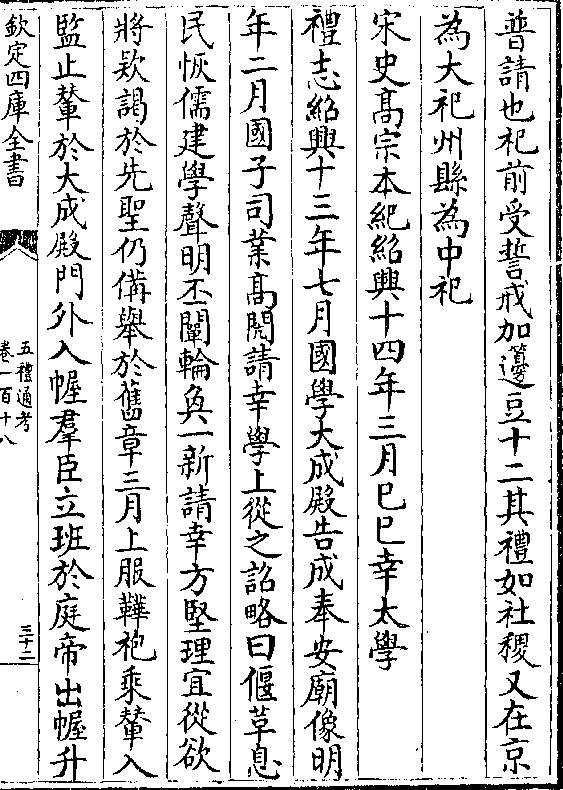 普請也祀前受誓戒加籩豆十二其禮如社稷又在京
為大祀州縣為中祀
宋史髙宗本紀紹興十四年三月己巳幸太學
禮志紹興十三年七月國學大成殿告成奉安廟像明
年二月國子司業髙閌請幸學上從之詔略曰偃草息
民恢儒建學聲明丕闡輪奐一新請幸方堅理宜從欲
將欵謁於先聖仍備舉於舊章三月上服鞾袍乘輦入
監止輦於大成殿門外入幄羣臣立班於庭帝出幄升
欽定四庫全書
五禮通考
卷一百十八
三十二